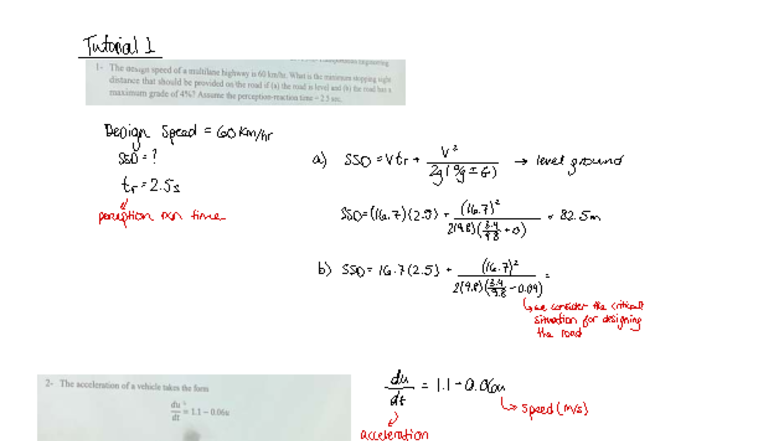 Tutorial 1
1- The design speed of a multilane highway is 60 km/hr. What is the minimum stopping sight
distance that should be provided on the road if (a) the road is level and (b) the road has a
maximum grade of 4%? Assume the perception-reaction time = 2.5 sec.
Design Speed = 60 Km/hr
SSD = ?
tr = 2.5s
time
a) SSD = Vtr + V² / 2g(a/g ± G) → level ground
SSD = (16.7)(2.5) + (16.7)² / 2(9.8)(3.4/9.8 + 0) = 82.5m
b) SSD = 16.7(2.5) + (16.7)² / 2(9.8)(3.4/9.8 - 0.04) =
↳ we consider the critical
situation for designing
the road
2- The acceleration of a vehicle takes the form
du/dt = 1.1 - 0.06u
du/dt = 1.1 - 0.06u
↳ speed (m/s)
acceleration